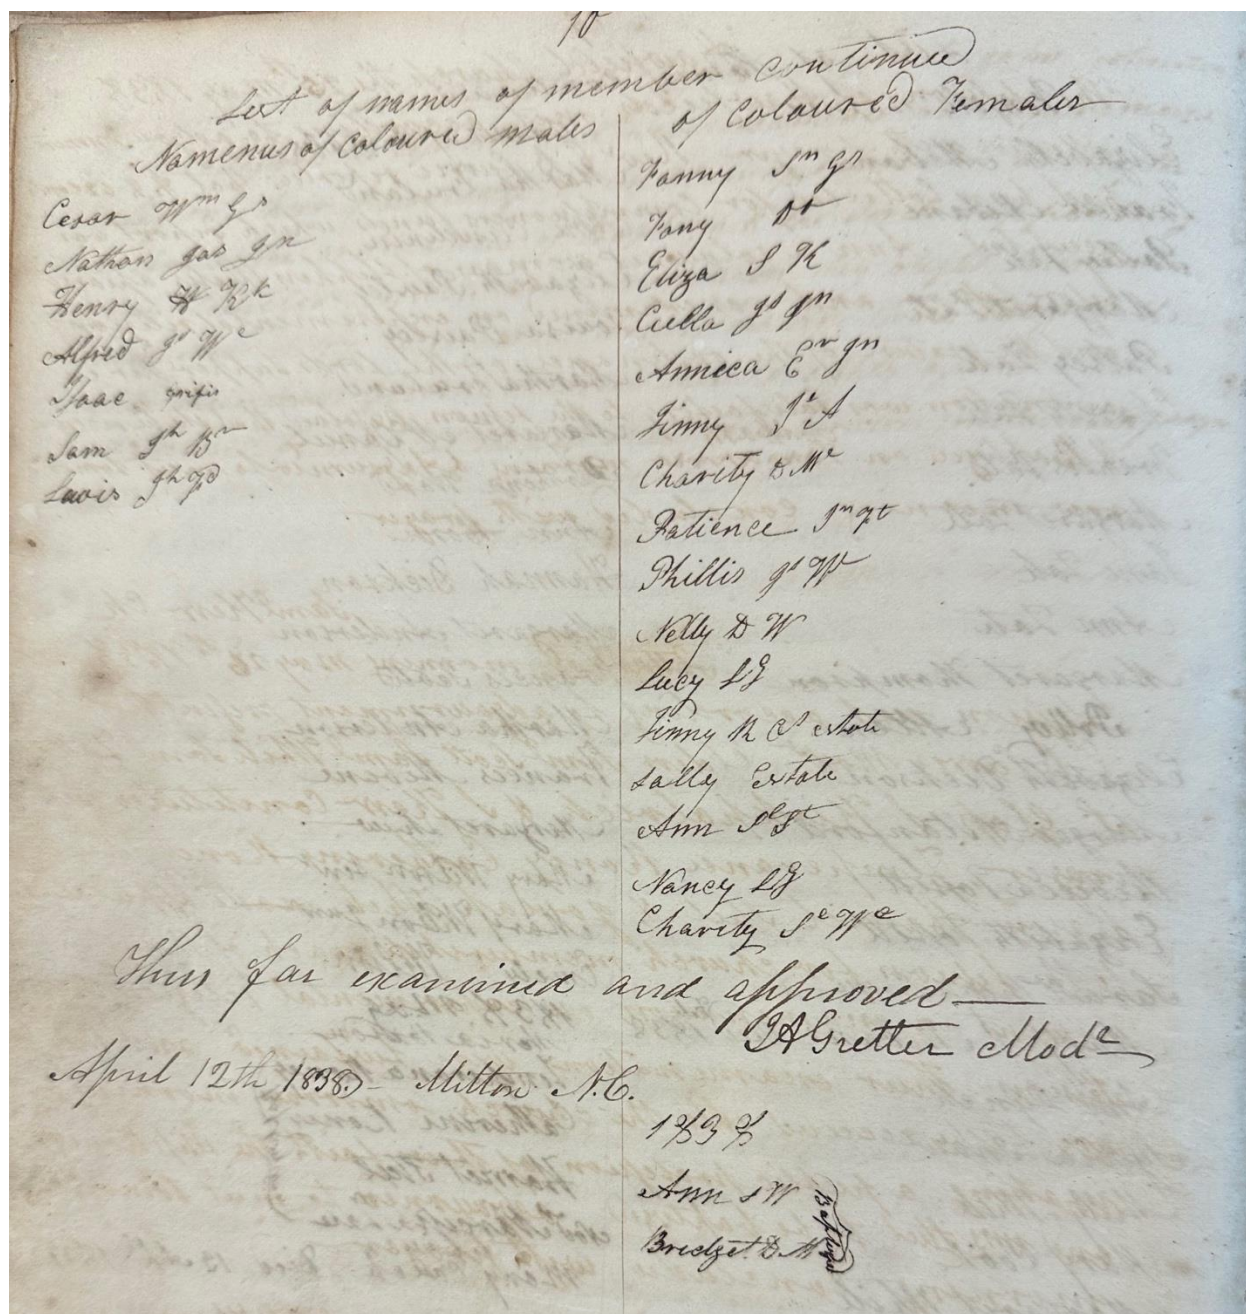 10
List of names of member continued
Namenus of Coloured males
Cesar Wm Gs
Nathan Jas Gn
Henry H Kk
Alfred Js We
Isaac
Sam Jh Br
Lewis Jh
of Coloured Females
Fanny Jn Gs
Fany Do
Eliza S K
Cella Js Gn
Annica Er Gn
Jinny Js A
Charity D Mc
Patience Jn
Phillis Js W
Nelly D W
Lucy LG
Jinny R Cs estate
Sally Estate
Ann
Nancy LG
Charity Se We
Thus far examined and approved —
JAGretter Modr
April 12th 1838 – Milton N.C.
1838
Ann S W
Bridget D M
Baptized